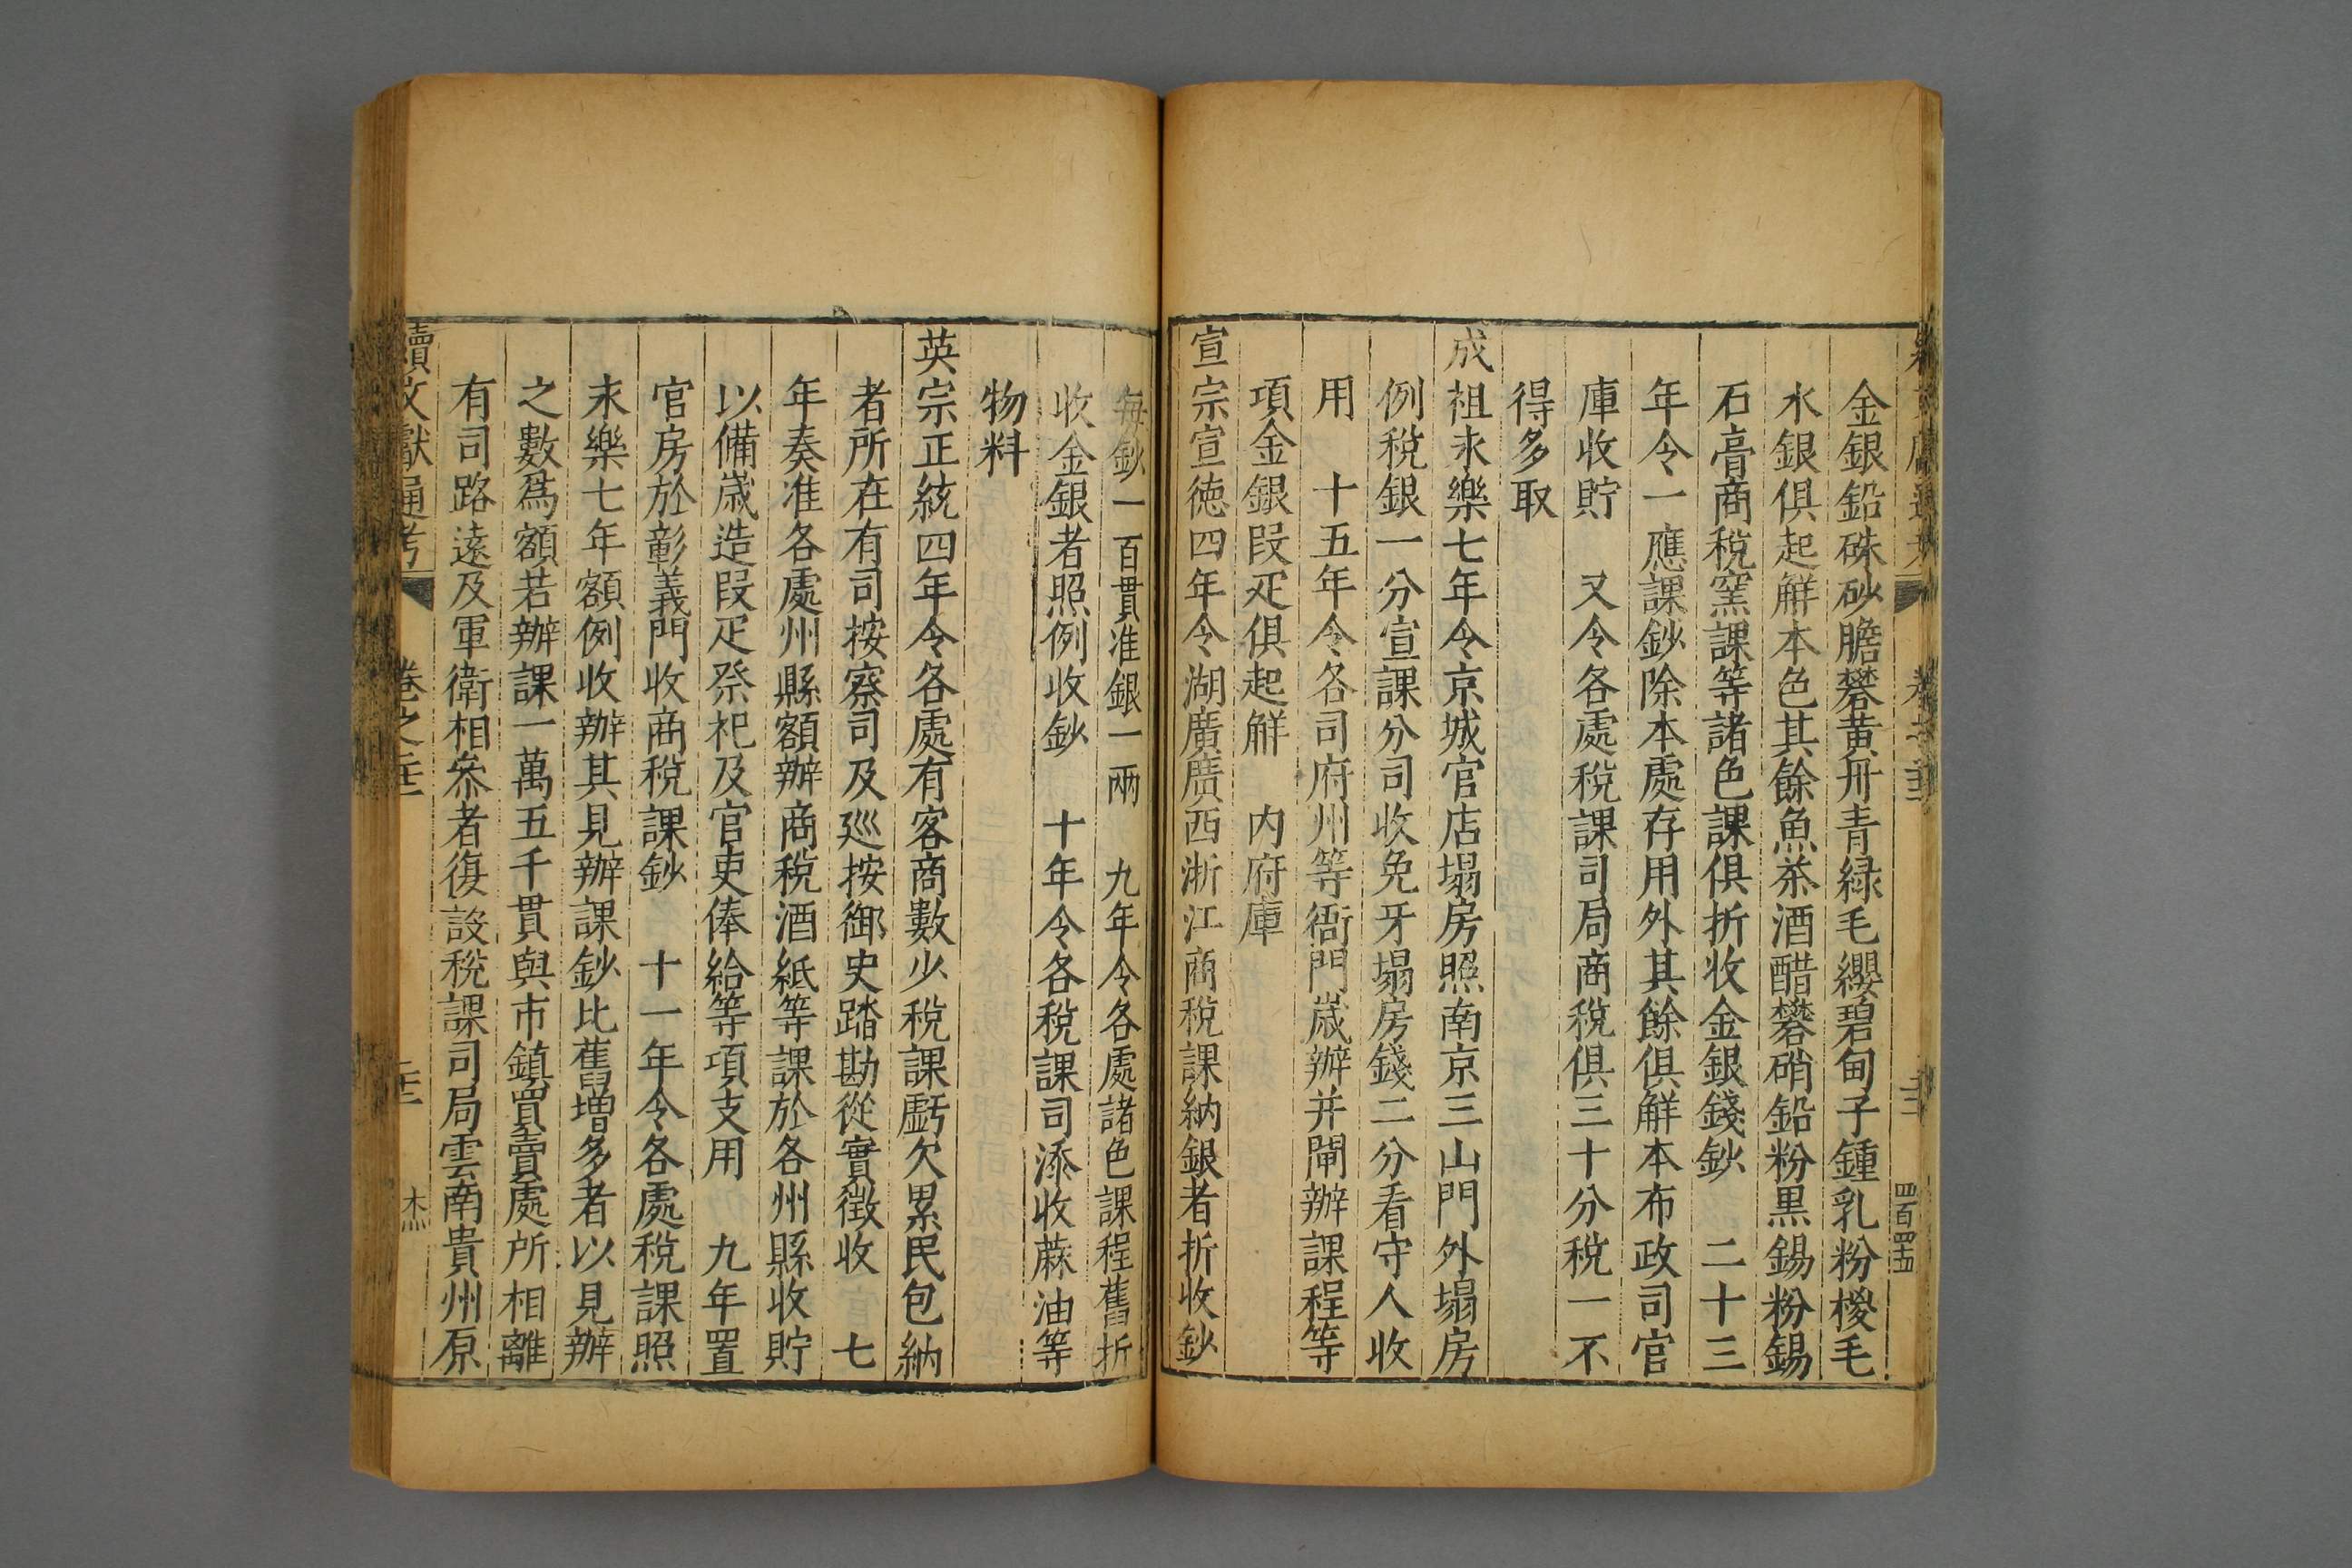 金銀鉛硃砂膽礬黄丹青緑毛纓碧甸子鍾乳粉椶毛
水銀俱起觧本色其餘魚茶酒醋礬硝鉛粉黒錫粉錫
石膏商稅窯課等諸色課俱折收金銀錢鈔　二十三
年令一應課鈔除本處存用外其餘俱觧本布政司官
庫收貯　又令各處稅課司局商稅俱三十分稅一不
得多取
成祖永樂七年令京城官店塌房照南京三山門外塌房
例稅銀一分宣課分司收免牙塌房錢二分看守人收
用　十五年令各司府州等衙門歳辦并閘辦課程等
項金銀叚疋俱起觧　内府庫
宣宗宣徳四年令湖廣廣西浙江商稅課納銀者折收鈔
每鈔一百貫准銀一兩　九年令各處諸色課程舊折
收金銀者照例收鈔　十年令各稅課司添收蔴油等
物料
英宗正統四年令各處有客商數少稅課虧欠累民包納
者所在有司按察司及廵按御史踏勘從實徵收　七
年奏准各處州縣額辦商稅酒紙等課於各州縣收貯
以備歳造叚疋祭祀及官吏俸給等項支用　九年置
官房於彰義門收商稅課鈔　十一年令各處稅課照
永樂七年額例收辦其見辦課鈔比舊增多者以見辦
之數爲額若辦課一萬五千貫與市鎮買賣處所相離
有司路遠及軍衛相叅者復設稅課司局雲南貴州原
續文獻通考
卷之